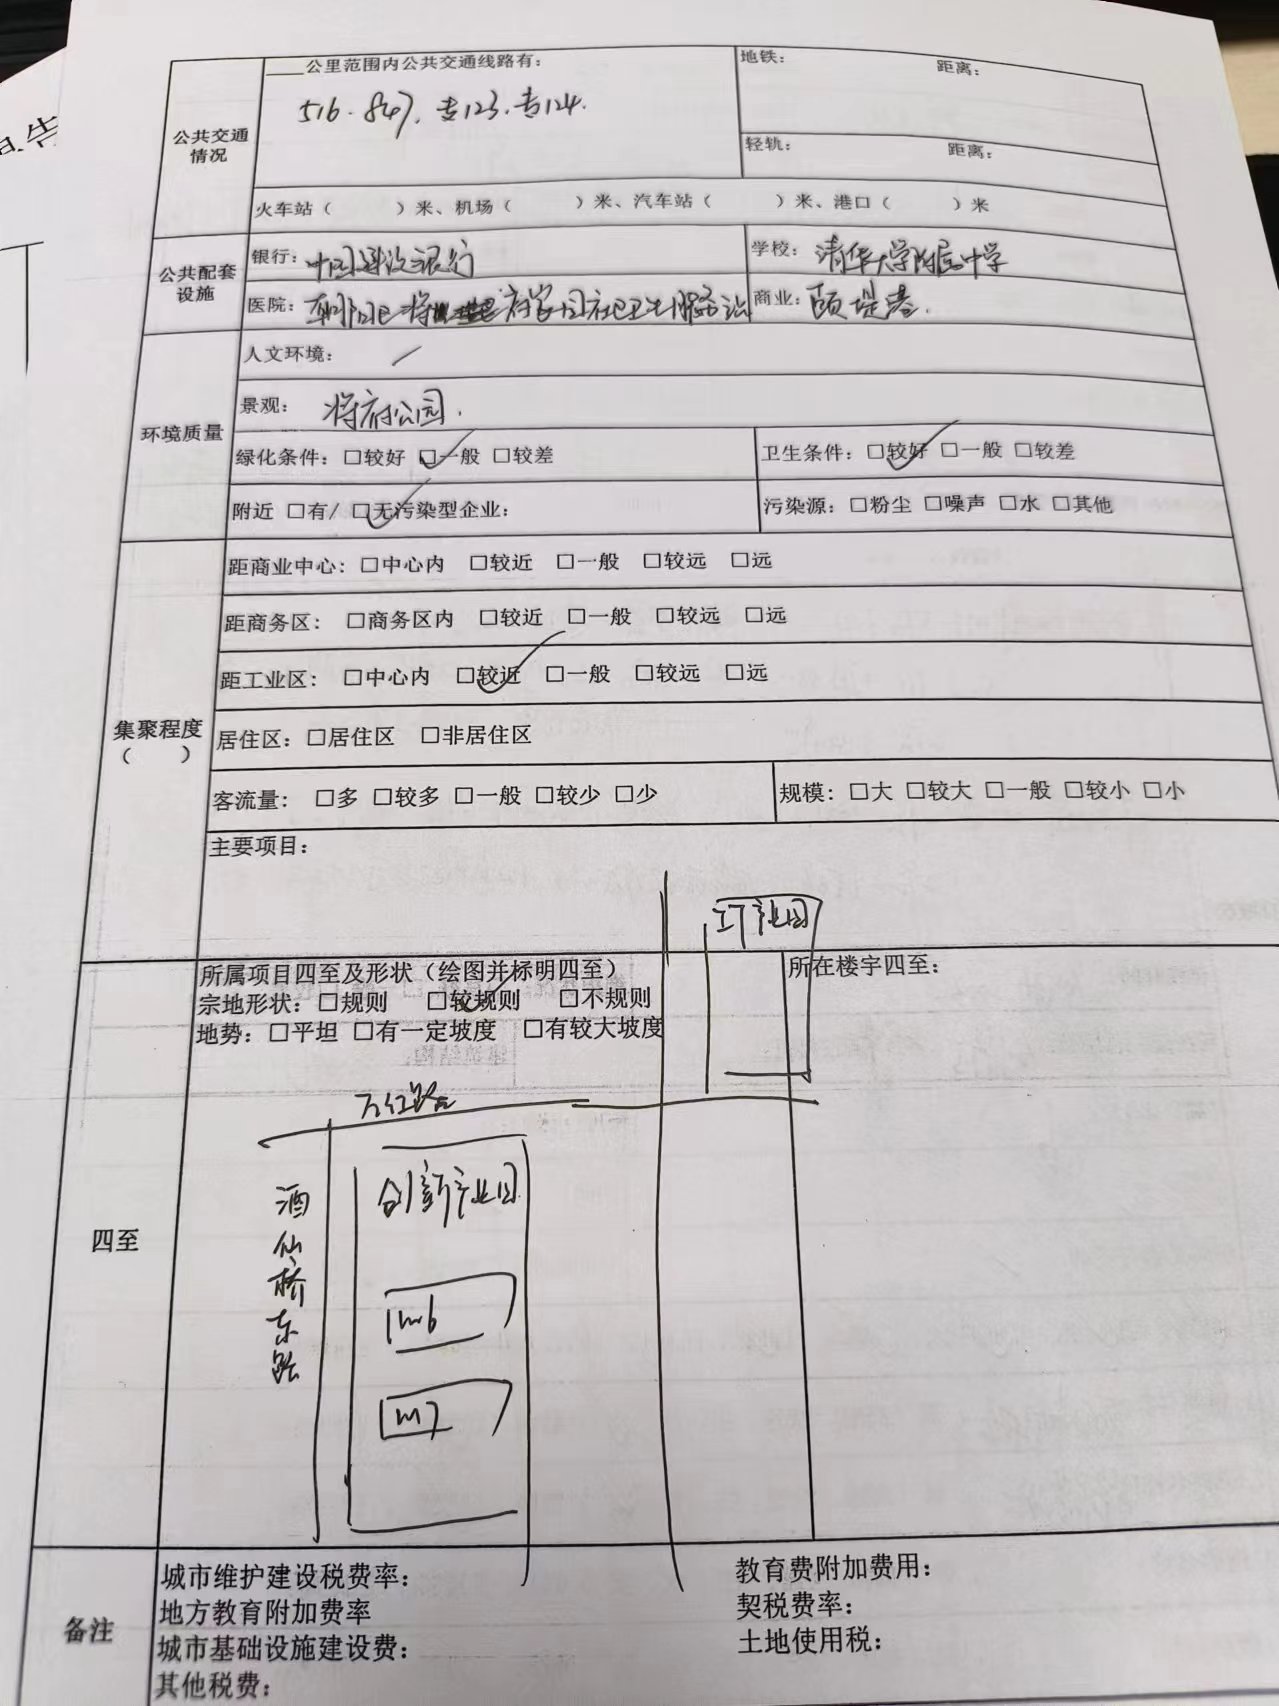 公共交通情况
____公里范围内公共交通线路有：
516．847．专123．专124．
地铁： 距离：
轻轨： 距离：
火车站（ ）米、机场（ ）米、汽车站（ ）米、港口（ ）米
公共配套设施
银行：中国建设银行
学校：清华大学附属中学
医院：朝阳区将府家园社区卫生服务站
商业：颐堤港．
环境质量
人文环境：／
景观：将府公园．
绿化条件：□较好 □一般 □较差
卫生条件：□较好 □一般 □较差
附近 □有/ □无污染型企业：
污染源：□粉尘 □噪声 □水 □其他
集聚程度
（ ）
距商业中心：□中心内 □较近 □一般 □较远 □远
距商务区：□商务区内 □较近 □一般 □较远 □远
距工业区：□中心内 □较近 □一般 □较远 □远
居住区：□居住区 □非居住区
客流量：□多 □较多 □一般 □较少 □少
规模：□大 □较大 □一般 □较小 □小
主要项目：
四至
所属项目四至及形状（绘图并标明四至）
宗地形状：□规则 □较规则 □不规则
地势：□平坦 □有一定坡度 □有较大坡度
所在楼宇四至：
万红路
酒仙桥东路
创新产业园
M6
M7
备注
城市维护建设税费率：
教育费附加费用：
地方教育附加费率
契税费率：
城市基础设施建设费：
土地使用税：
其他税费：